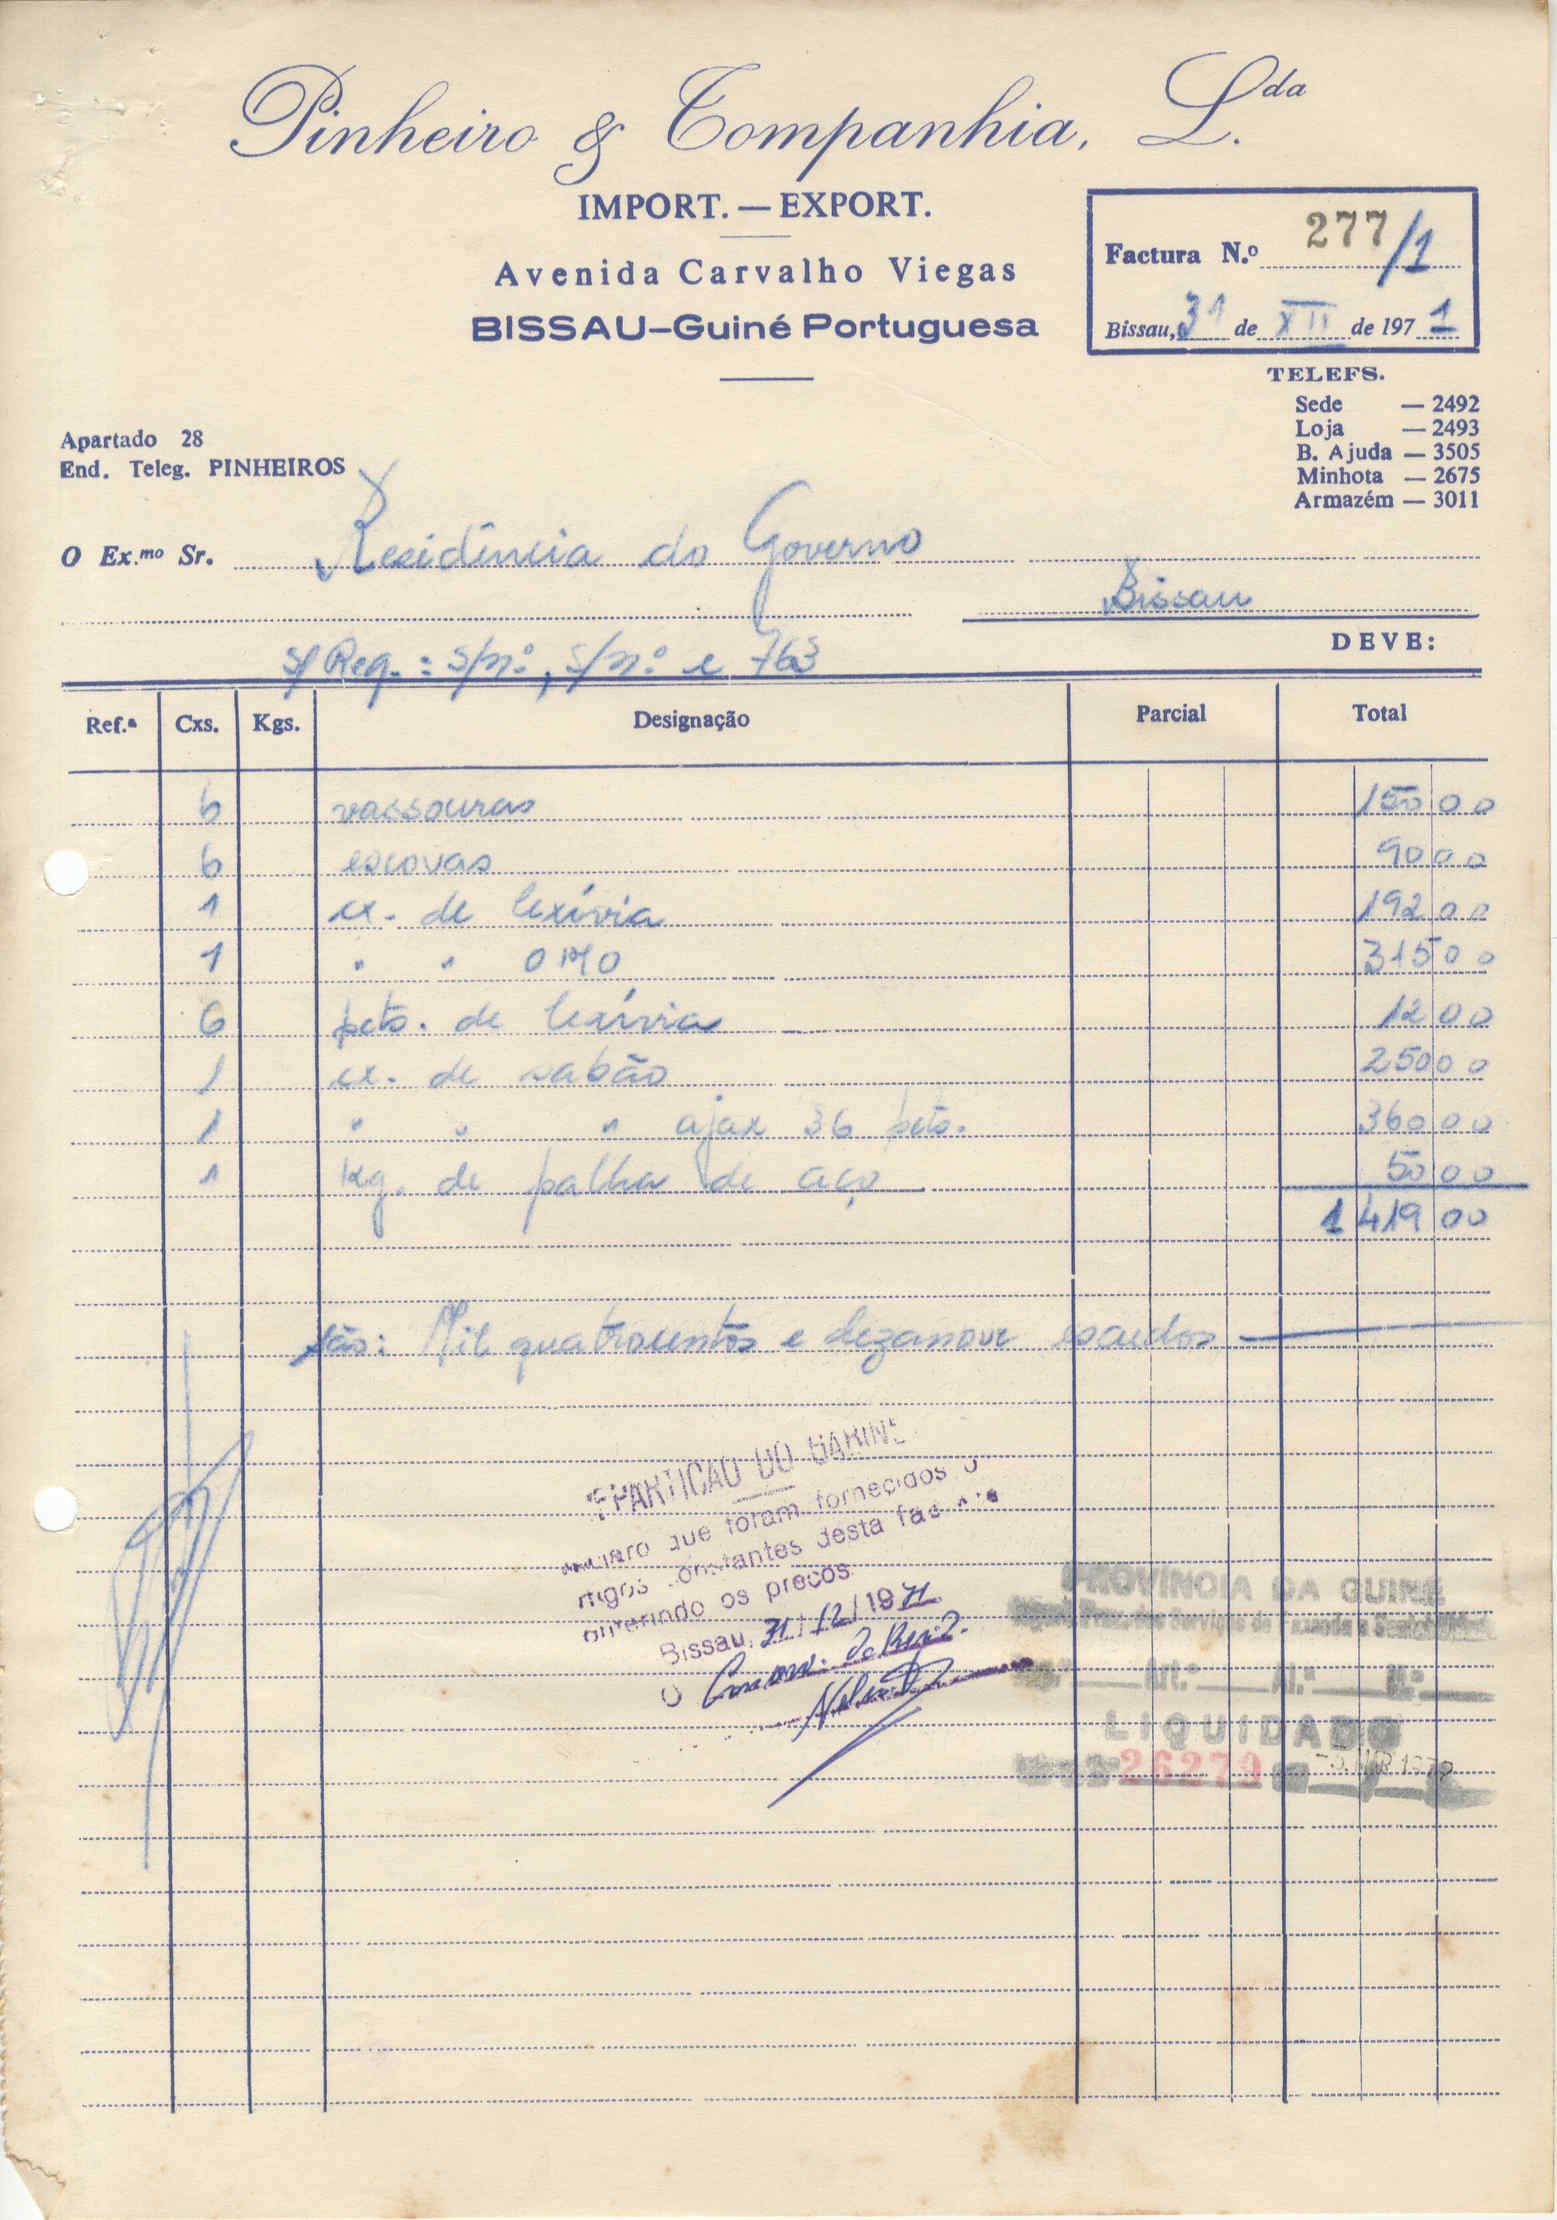 Pinheiro & Companhia, L.da
IMPORT. — EXPORT.
Avenida Carvalho Viegas
BISSAU—Guiné Portuguesa
Factura N.º 277/1
Bissau, 31 de XII de 1971
TELEFS.
Sede — 2492
Loja — 2493
B. Ajuda — 3505
Minhota — 2675
Armazém — 3011
Apartado 28
End. Teleg. PINHEIROS
O Ex.mo Sr. Residência do Governo
Bissau
DEVE:
s/ Req.: s/nº, s/nº e 763
Ref.ª Cxs. Kgs. Designação Parcial Total
6 vassouras 150 00
6 escovas 90 00
1 cx. de lexívia 192 00
1 " " OMO 315 00
6 pcts. de lexívia 12 00
1 cx. de sabão 250 00
1 " " " ajax 36 pcts. 360 00
1 kg. de palha de aço 50 00
1 419 00
São: Mil quatrocentos e dezanove escudos
que foram fornecidos
constantes desta
os preços
Bissau, 31/12/1971
O
PROVINCIA DA GUINÉ
Art.º Al.ª N.º
LIQUIDADO
26279